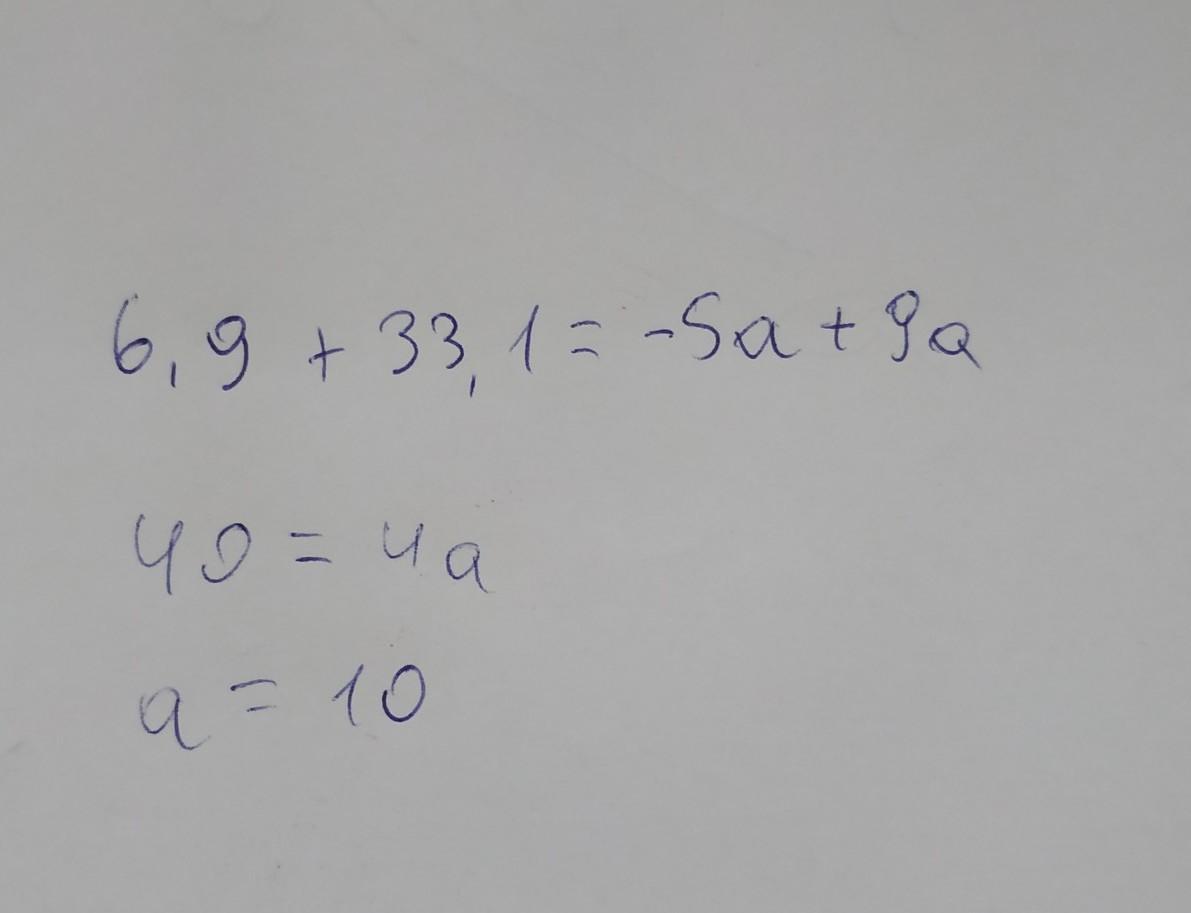 6,9 + 33,1 = -5a + 9a
40 = 4a
a = 10